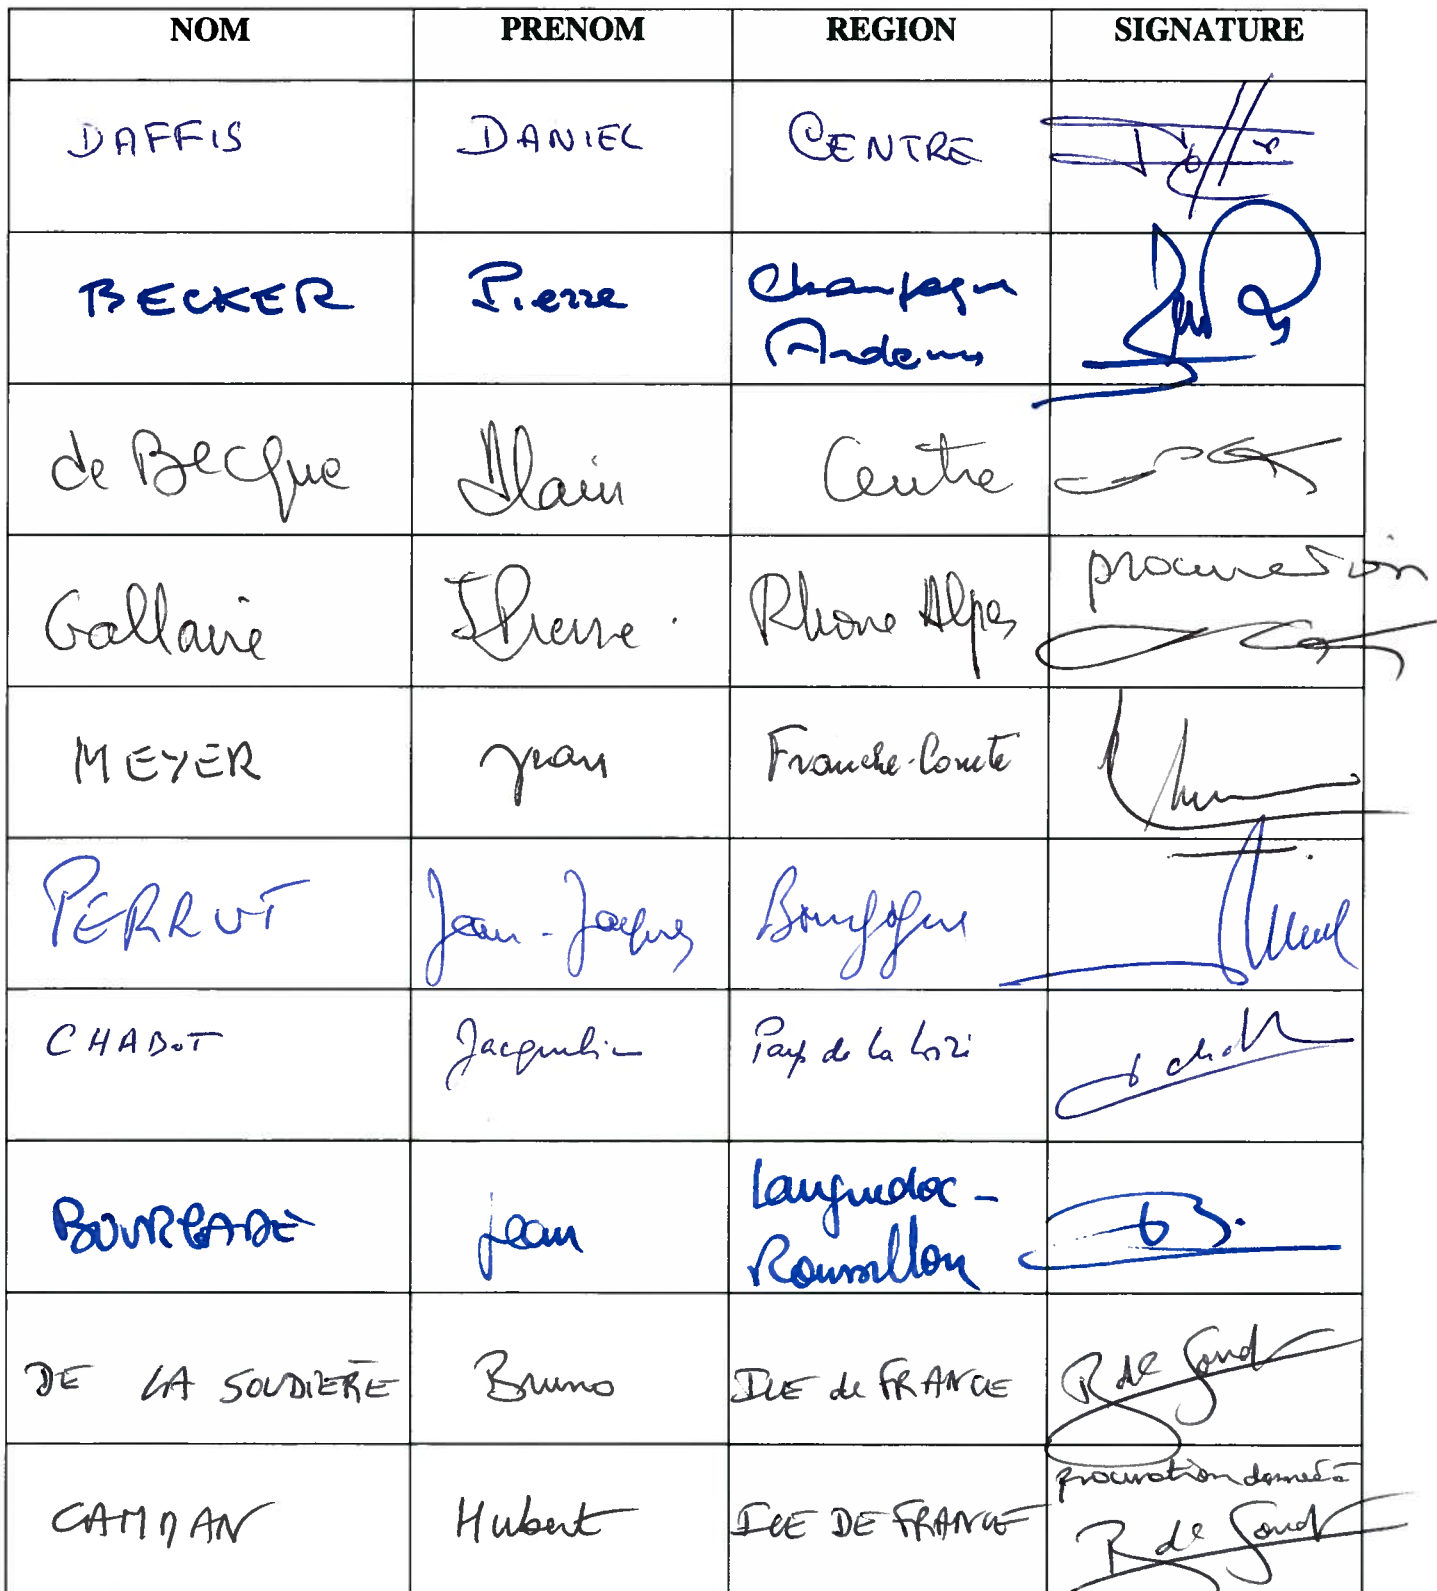 NOM PRENOM REGION SIGNATURE
DAFFIS DANIEL CENTRE
BECKER Pierre Champagne
Ardennes
de Becque Alain Centre
Gallaire Pierre Rhone Alpes procuration
MEYER Jean Franche-Comte
PERRUT Jean-Jacques Bourgogne
CHABOT Jacquelin Pays de la Loire
BOURGADE jean Languedoc-
Roussillon
DE LA SOUDIERE Bruno ILE de FRANCE
procuration donnée à
CAMPAN Hubert ILE DE FRANCE